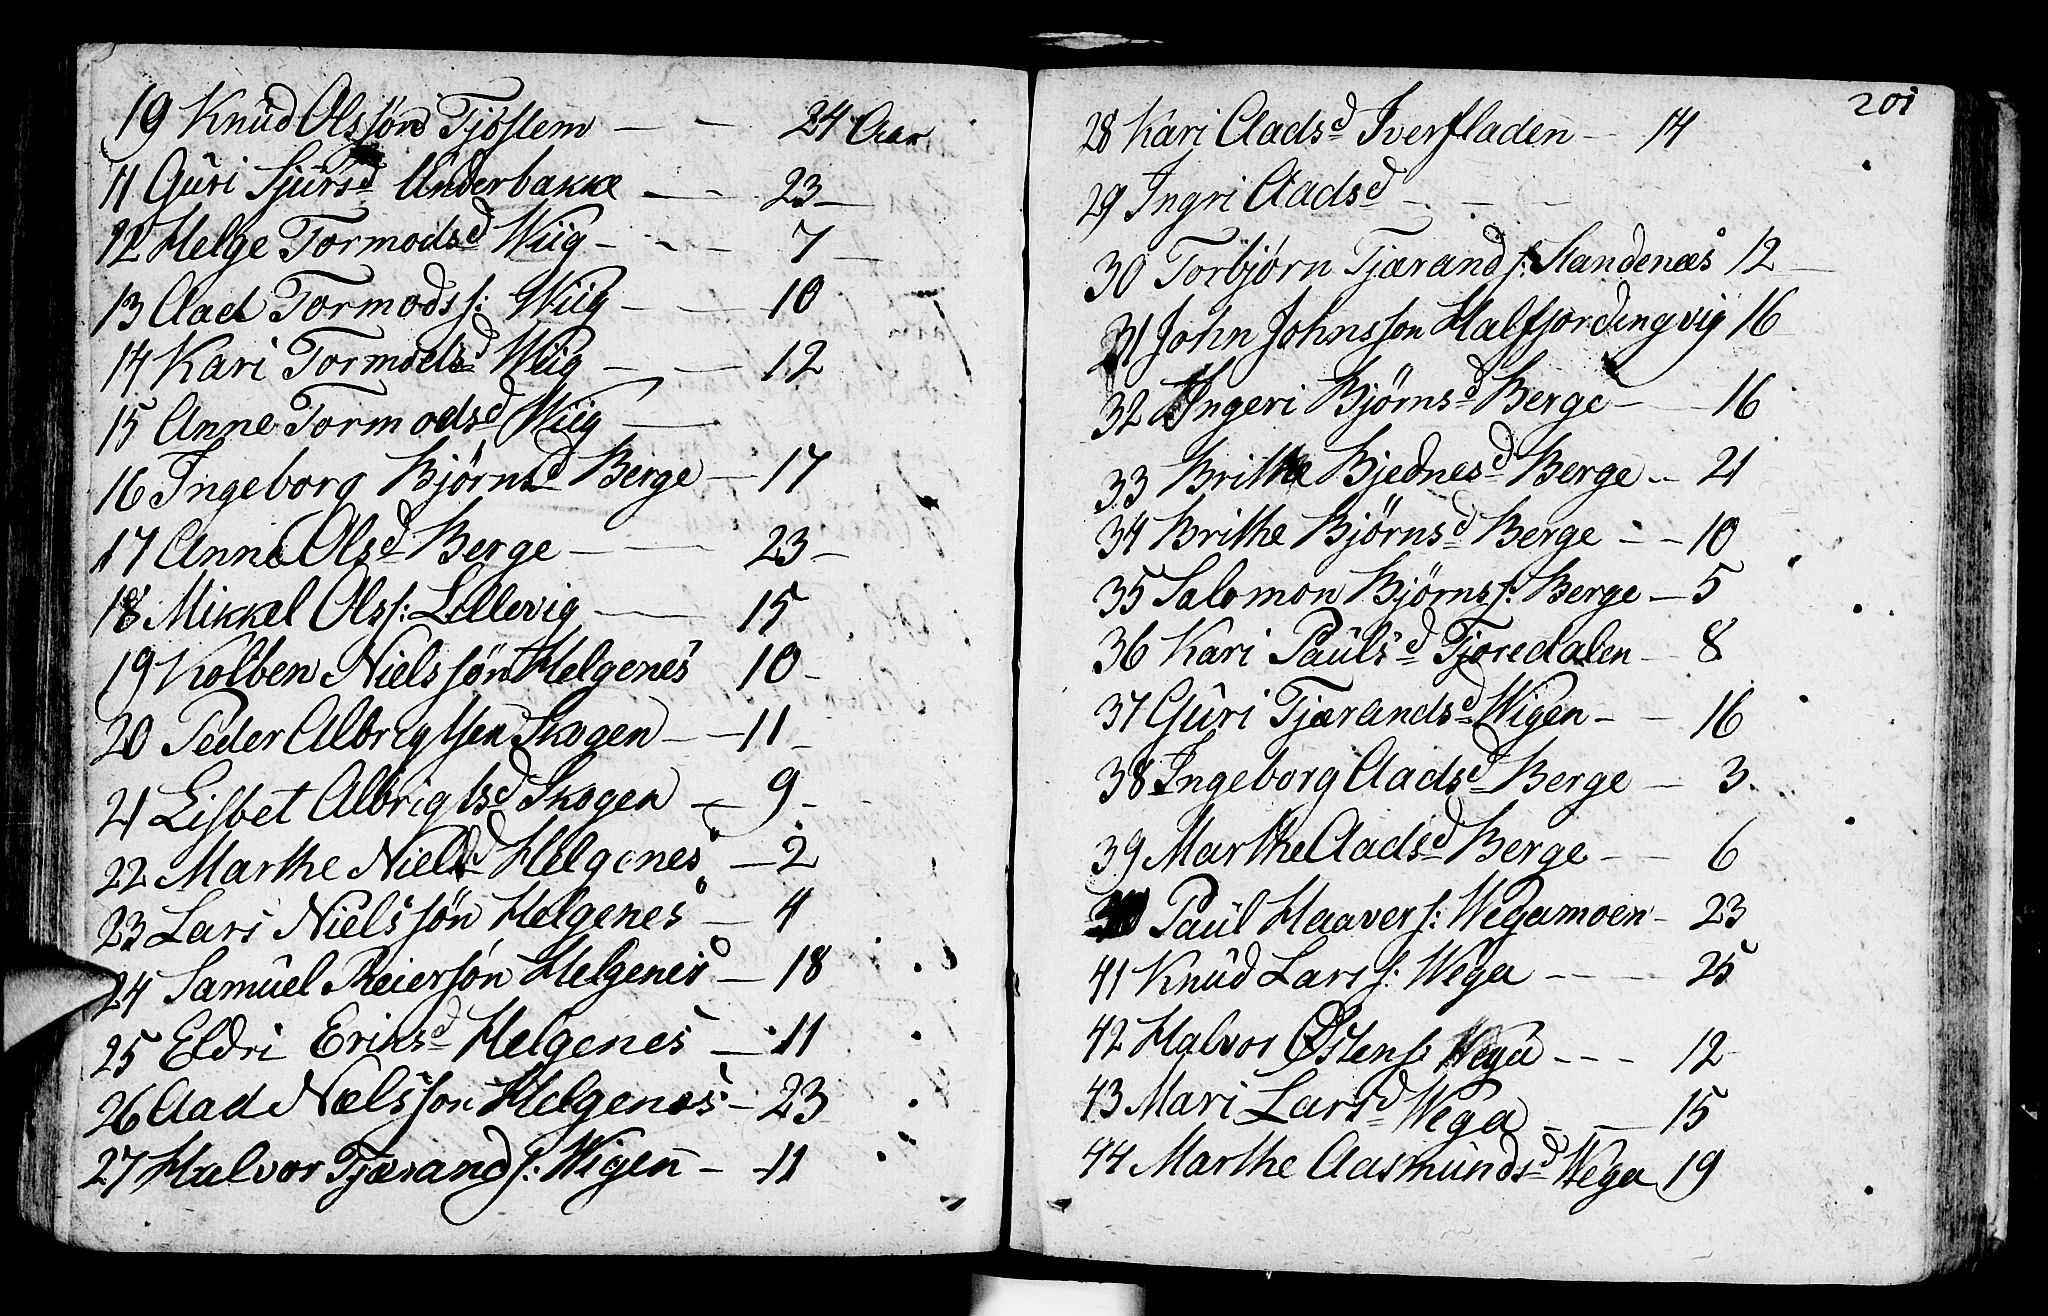 19 Knud Olssøn Tjøstem — — 24 Aar
11 Guri Sjursd Underbakke — — 23 —
12 Helge Tormodsd Wiig - - — 7 —
13 Aad Tormodss: Wiig — — 10
14 Kari Tormodsd Wiig — — 12
15 Anne Tormodsd Wiig —
16 Ingeborg Bjørnsd Berge — 17
17 Anne Olsd Berge — — 23 —
18 Mikkel Olss: Lillevig — — 15
19 Kolben Nielssøn Helgenes 10 -
20 Peder Albrigtsen Skogen — — 11 -
21 Lisbet Albrigtsd Skogen — 9 -
22 Marthe Nielsd Helgenes — 2
23 Lars Nielssøn Helgenes — 4
24 Samuel Reiersøn Helgenes — 18
25 Eldri Eriksd Helgenes — 11
26 Aad Nielssøn Helgenes — 23
27 Halvor Tjærands: Wigen — 11
201
28 Kari Aadsd Iverfladen — 14
29 Ingri Aadsd - - -
30 Torbjørn Tjærands: Sandenæs 12 —
31 John Johnsson Halfjordingvig 16
32 Ingeri Bjørnsd Berge — — 16
33 Brithe Bjednesd Berge - - 21
34 Brithe Bjørnsd Berge - - 10
35 Salomon Bjørnss: Berge — 5
36 Kari Paulsd Tjoredalen — 8
37 Guri Tjærandsd Wigen - - 16
38 Ingeborg Aadsd Berge — 3.
39 Marthe Aadsd Berge — — 6
Paul Haavers: Wegamoen - 23
41 Knud Larss: Wega — — 25
42 Halvor Østens: Wega - - - 12
43 Mari Larsd Wega — — 15
44 Marthe Aasmundsd Wega 19